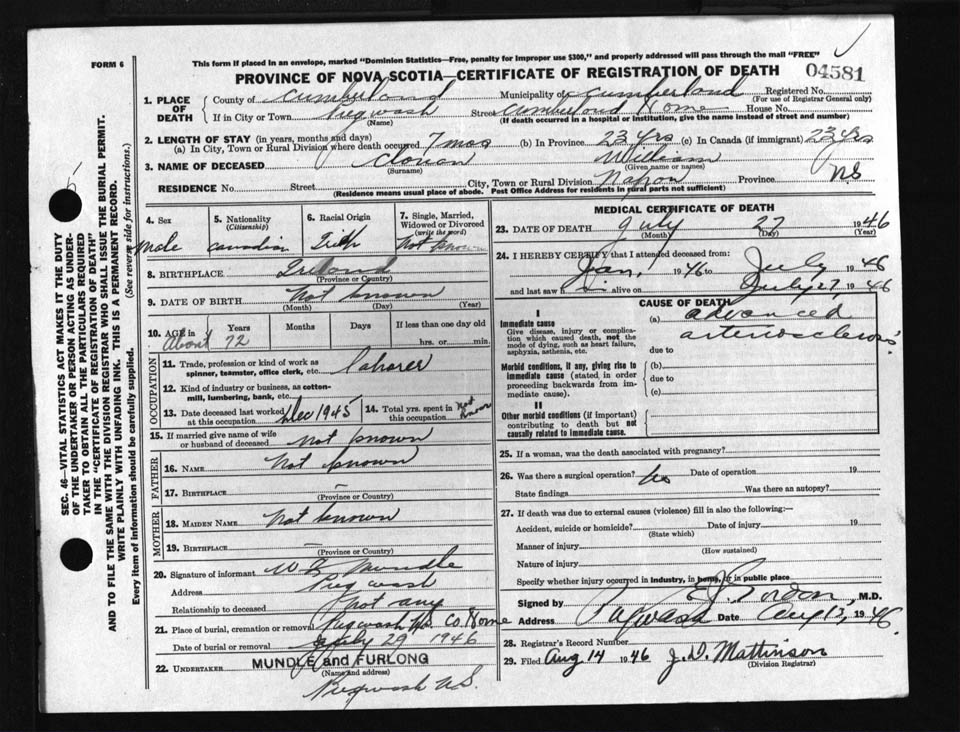 FORM 6
This form if placed in an envelope, marked "Dominion Statistics—Free, penalty for improper use $300," and properly addressed will pass through the mail "FREE"
PROVINCE OF NOVA SCOTIA—CERTIFICATE OF REGISTRATION OF DEATH 04581
1. PLACE OF DEATH County of Cumberland Municipality of Cumberland Registered No. (For use of Registrar General only)
If in City or Town Pugwash (Name) Street Cumberland Home House No.
(If death occurred in a hospital or institution, give the name instead of street and number)
2. LENGTH OF STAY (in years, months and days)
(a) In City, Town or Rural Division where death occurred 7 mos (b) In Province 23 yrs (c) In Canada (if immigrant) 23 yrs
3. NAME OF DECEASED (Surname) William (Given name or names)
RESIDENCE No. Street City, Town or Rural Division Province NS
(Residence means usual place of abode. Post Office Address for residents in rural parts not sufficient)
4. Sex male
5. Nationality (Citizenship) Canadian
6. Racial Origin
7. Single, Married, Widowed or Divorced (write the word) Not known
8. BIRTHPLACE Ireland (Province or Country)
9. DATE OF BIRTH Not known (Month) (Day) (Year)
10. AGE in About 72 Years Months Days If less than one day old hrs. or min.
OCCUPATION
11. Trade, profession or kind of work as spinner, teamster, office clerk, etc. Laborer
12. Kind of industry or business, as cotton-mill, lumbering, bank, etc.
13. Date deceased last worked at this occupation Dec 1945
14. Total yrs. spent in this occupation Not known
15. If married give name of wife or husband of deceased Not known
FATHER
16. NAME Not known
17. BIRTHPLACE – (Province or Country)
MOTHER
18. MAIDEN NAME Not known
19. BIRTHPLACE – (Province or Country)
20. Signature of informant Mundle
Address Pugwash
Relationship to deceased Not any
21. Place of burial, cremation or removal Pugwash Co. Home
Date of burial or removal July 29 1946
22. UNDERTAKER MUNDLE and FURLONG
(Name and address)
Pugwash N.S.
MEDICAL CERTIFICATE OF DEATH
23. DATE OF DEATH July (Month) 27 (Day) 1946 (Year)
24. I HEREBY CERTIFY that I attended deceased from:
Jan. 1946 to July 1946
and last saw h i alive on July 27, 1946
CAUSE OF DEATH
I
Immediate cause
Give disease, injury or complication which caused death, not the mode of dying, such as heart failure, asphyxia, asthenia, etc.
(a) advanced arteriosclerosis
due to
Morbid conditions, if any, giving rise to immediate cause (stated in order proceeding backwards from immediate cause).
(b)
due to
(c)
II
Other morbid conditions (if important) contributing to death but not causally related to immediate cause.
25. If a woman, was the death associated with pregnancy?
26. Was there a surgical operation? No Date of operation 19
State findings Was there an autopsy?
27. If death was due to external causes (violence) fill in also the following:—
Accident, suicide or homicide? (State which) Date of injury 19
Manner of injury (How sustained)
Nature of injury
Specify whether injury occurred in industry, in home, or in public place
Signed by M.D.
Address Pugwash Date Aug 13, 1946
28. Registrar's Record Number
29. Filed Aug 14 1946 J. D. Mattinson (Division Registrar)
SEC. 46—VITAL STATISTICS ACT MAKES IT THE DUTY
OF THE UNDERTAKER OR PERSON ACTING AS UNDERTAKER
TO OBTAIN ALL THE PARTICULARS REQUIRED
IN THE "CERTIFICATE OF REGISTRATION OF DEATH"
AND TO FILE THE SAME WITH THE DIVISION REGISTRAR WHO SHALL ISSUE THE BURIAL PERMIT.
WRITE PLAINLY WITH UNFADING INK. THIS IS A PERMANENT RECORD.
Every item of information should be carefully supplied. (See reverse side for instructions.)